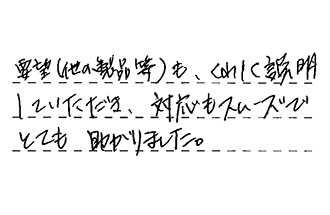 要望(他の製品等)も、くわしく説明
していただき、対応もスムーズで
とても助かりました。